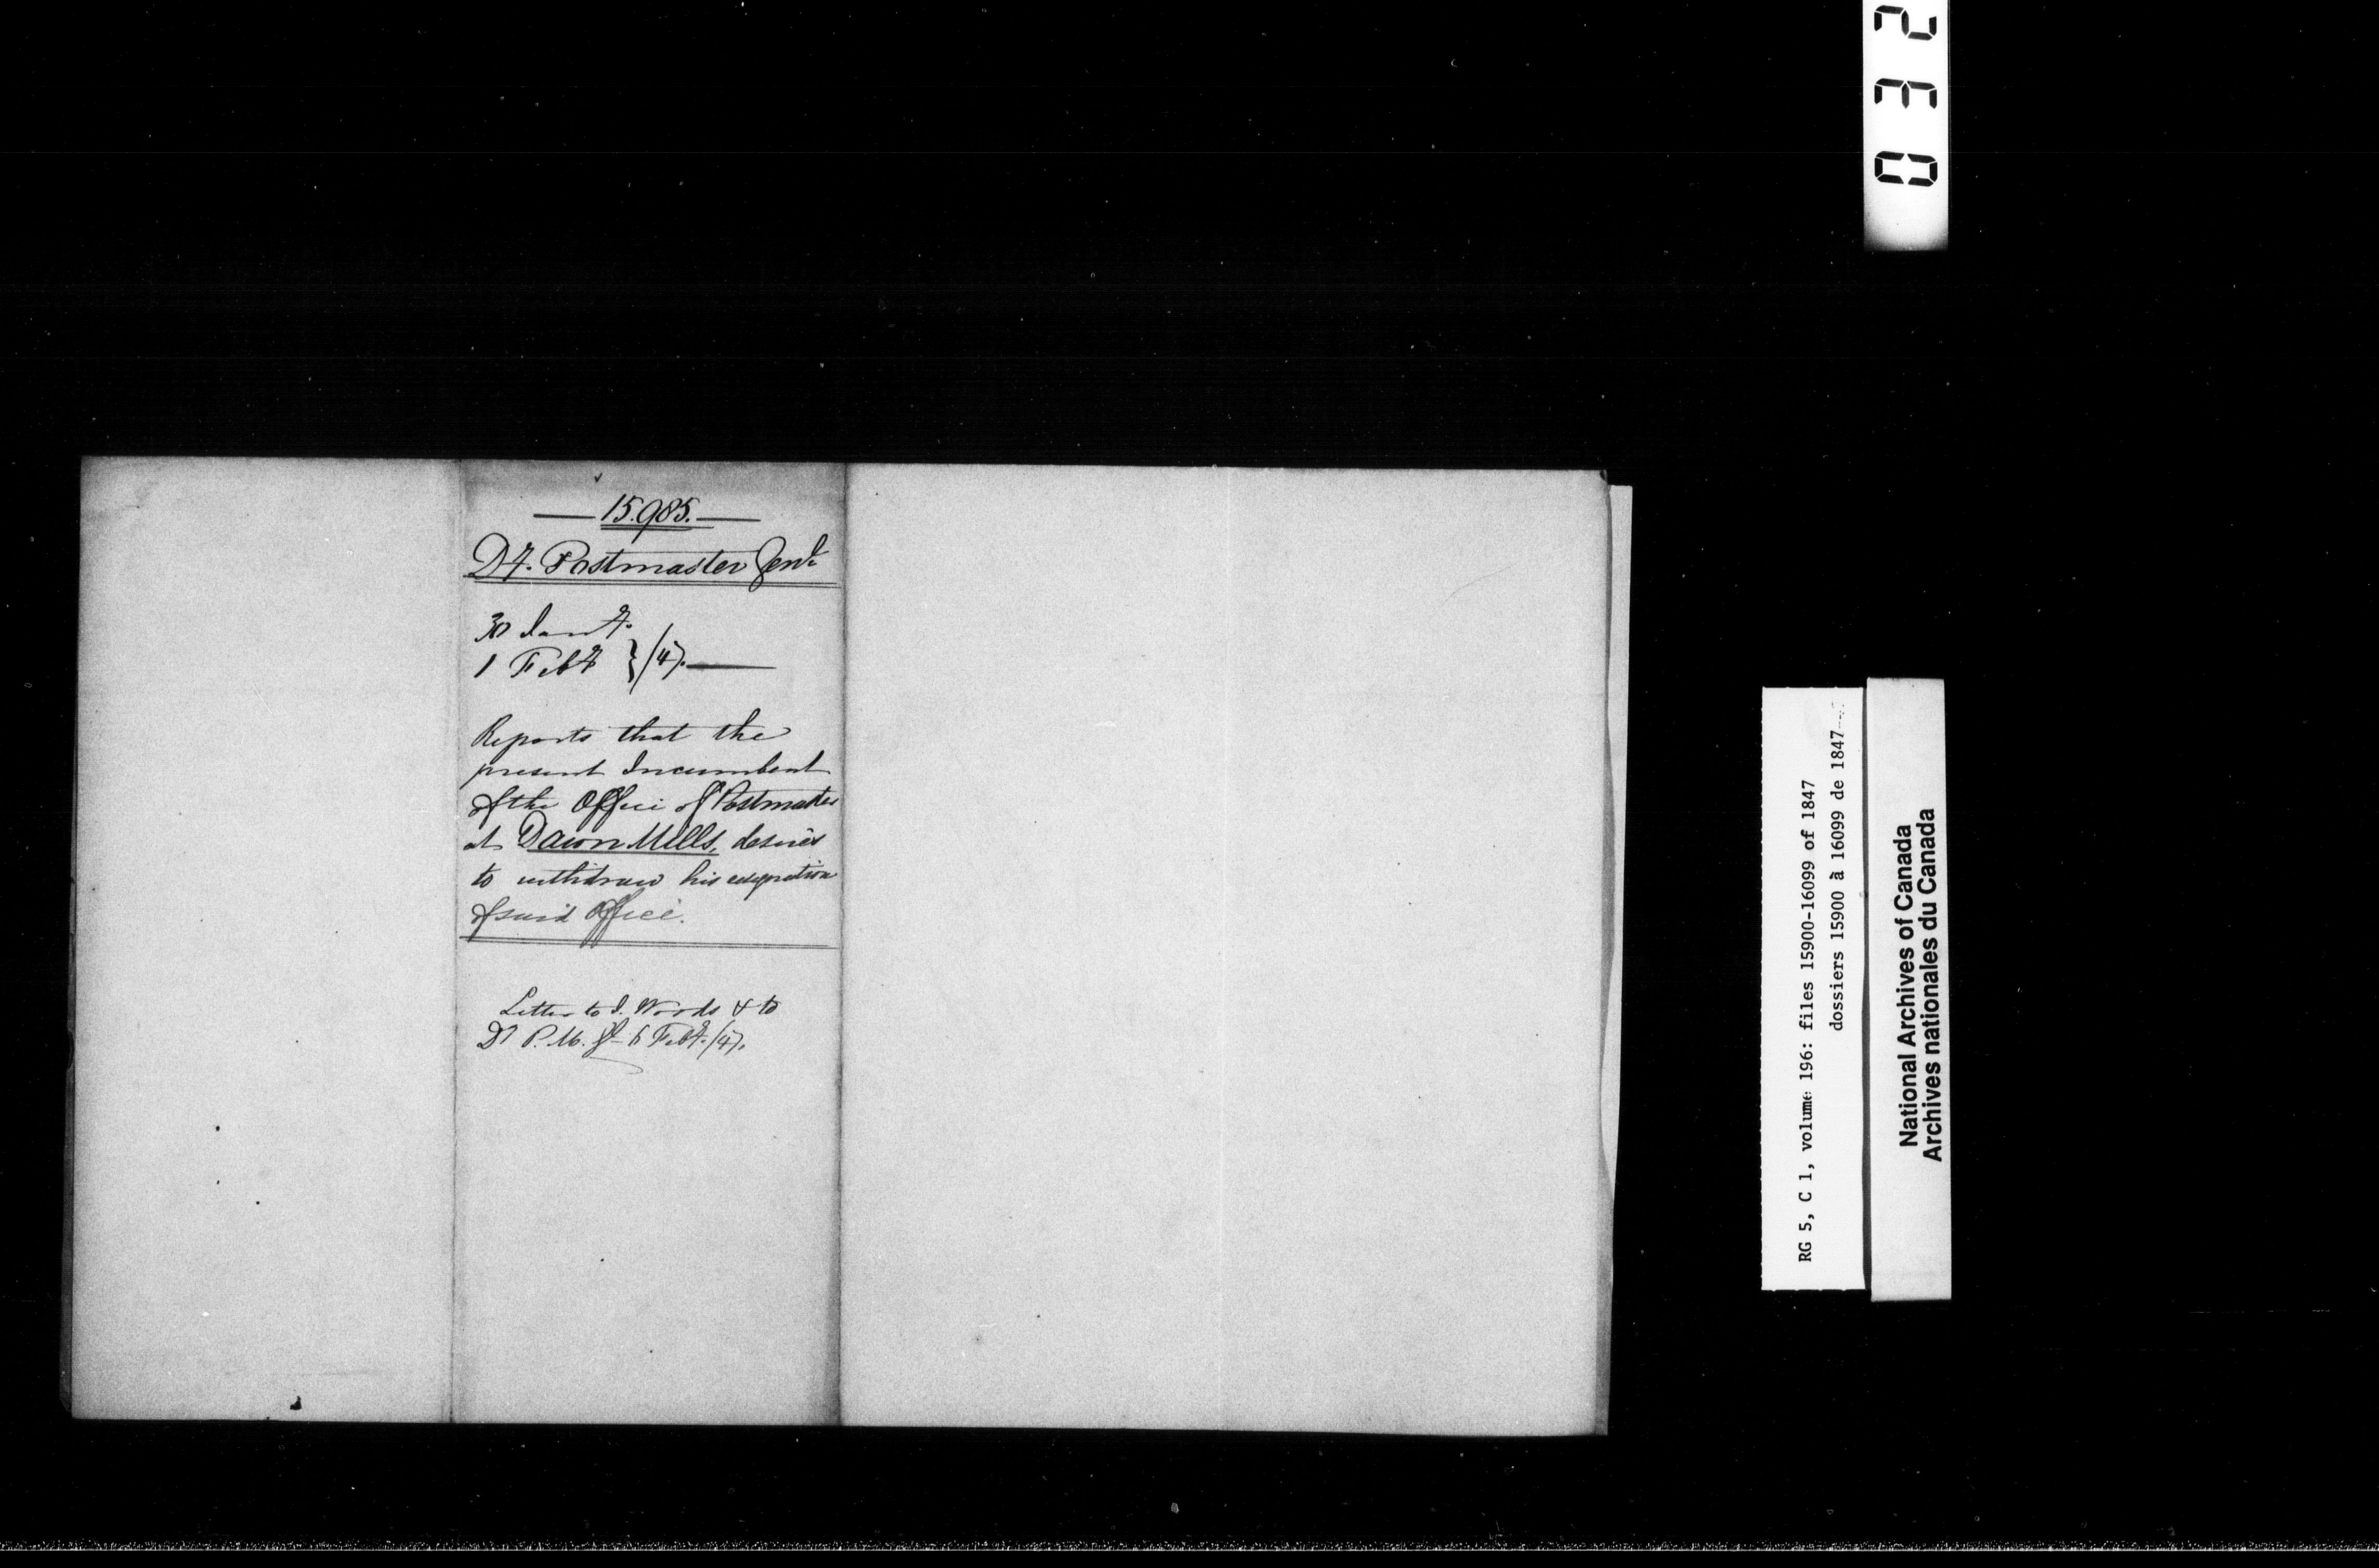 15.985.
Dy. Postmaster Genl
30 Jany.
1 Feby } /47.
Reports that the
present Incumbent
of the Office of Postmaster
at Dawn Mills, desires
to withdraw his resignation
of said Office.
Letter to J. Woods & to
Dy P. M. Gl 6 Feby. /47.
032
RG 5, C 1, volume 196: files 15900-16099 of 1847
dossiers 15900 à 16099 de 1847
National Archives of Canada
Archives nationales du Canada